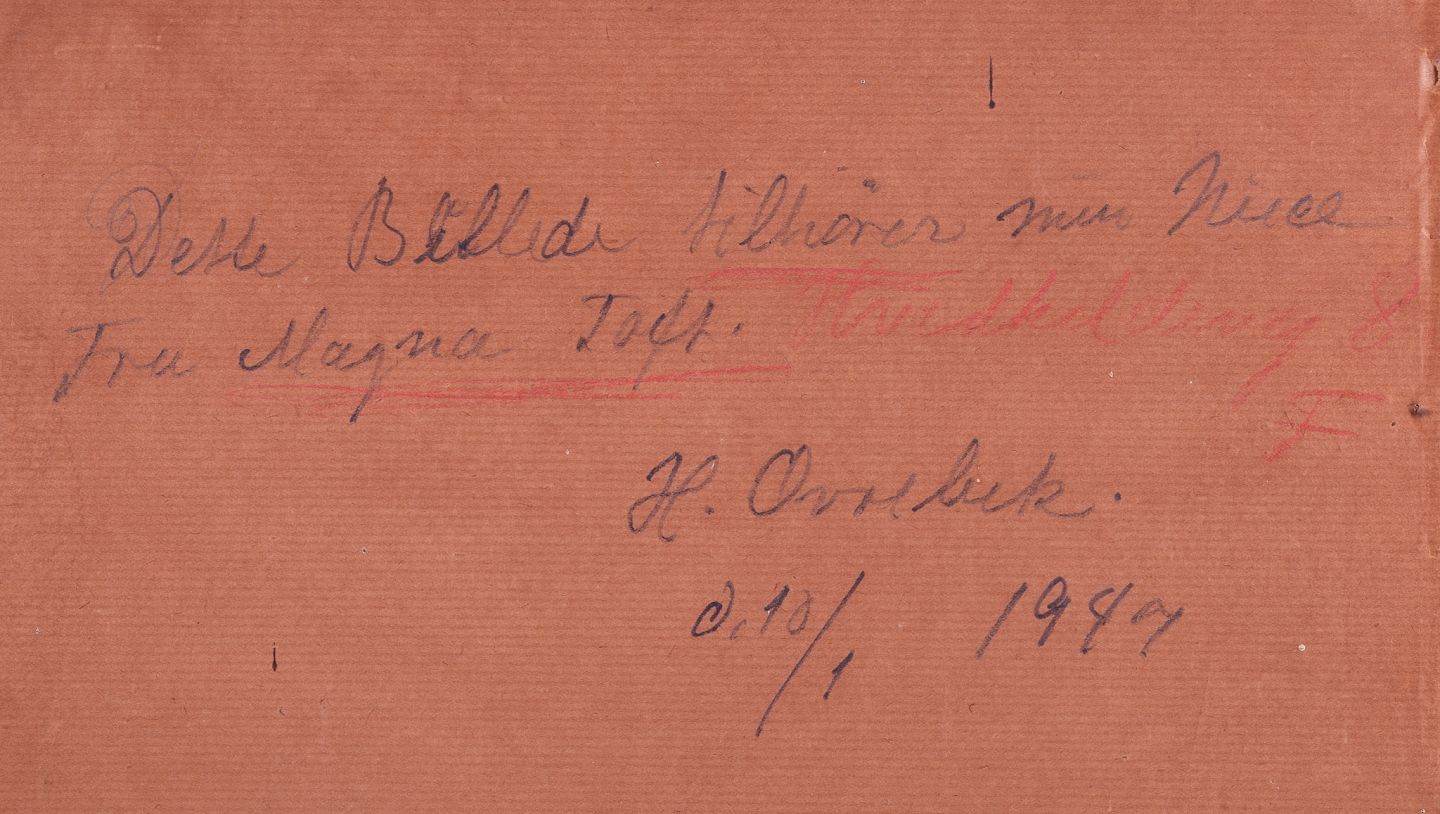 Dette Billede tilhörer min Niece
Fru Magna Toft. Hvedkalvang 8
F
H. Ovrebek.
d. 10/1 1947